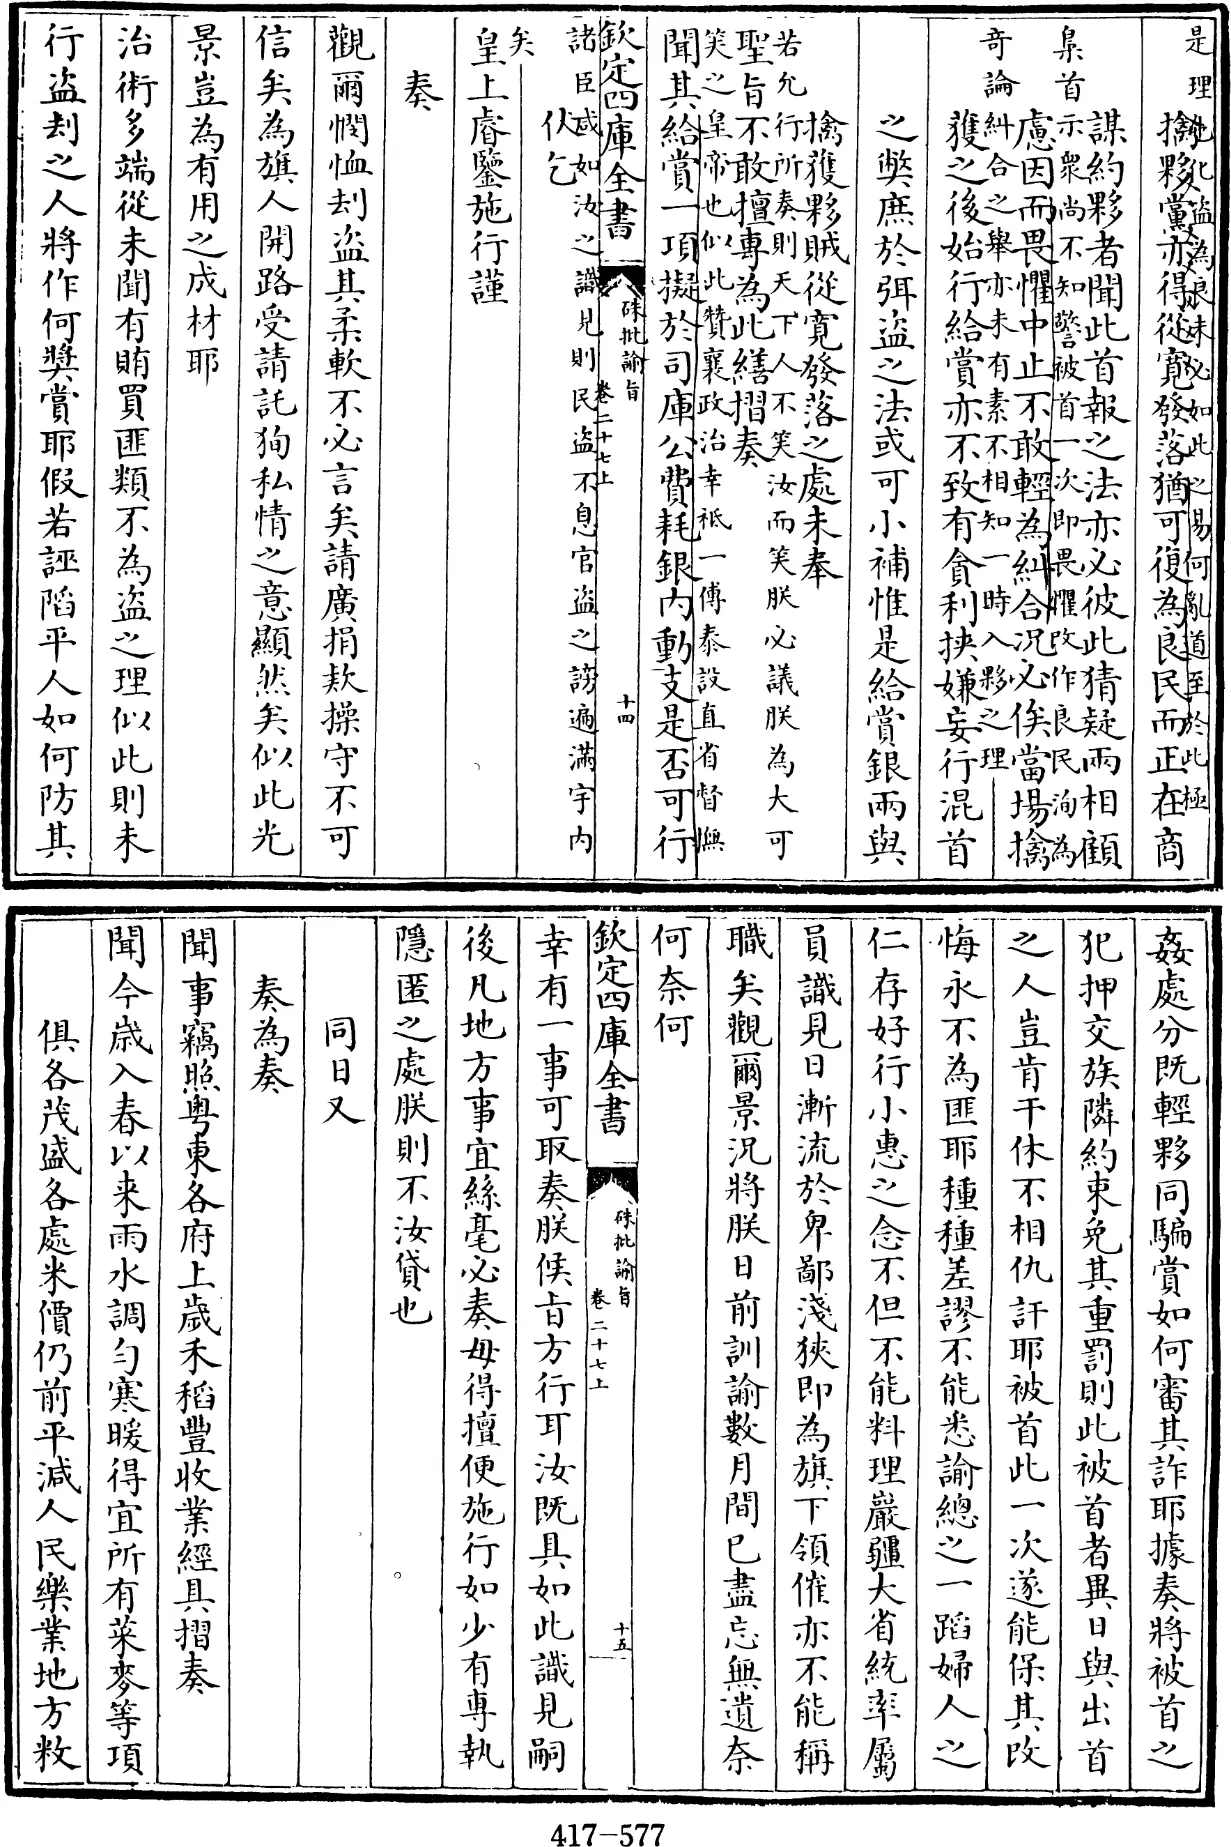 是理此化盜為良未必如此之易何亂道至於此極
擒夥黨亦得從寬發落猶可復為良民而正在商
梟首示衆尚不知警被首一次即畏懼改作良民洵為
謀約夥者聞此首報之法亦必彼此猜疑兩相顧
奇論糾合之舉亦未有素不相知一時入夥之理
慮因而畏懼中止不敢輕為糾合況必俟當場擒
獲之後始行給賞亦不致有貪利挾嫌妄行混首
之弊庶於弭盜之法或可小補惟是給賞銀兩與
擒獲夥賊從寬發落之處未奉
若允行所奏則天下人不笑汝而笑朕必議朕為大可
聖旨不敢擅專為此繕摺奏
笑之皇帝也似此贊襄政治幸祗一傅泰設直省督撫
聞其給賞一項擬於司庫公費耗銀內動支是否可行
欽定四庫全書
硃批諭旨
卷二十七上
十四
諸臣咸如汝之識見則民盜不息官盜之謗遍滿宇內
伏乞
矣
皇上睿鑒施行謹
奏
觀爾憫恤刦盜其柔軟不必言矣請廣捐款操守不可
信矣為旗人開路受請託狥私情之意顯然矣似此光
景豈為有用之成材耶
治術多端從未聞有賄買匪類不為盜之理似此則未
行盜刦之人將作何獎賞耶假若誣陷平人如何防其
姦處分既輕夥同騙賞如何審其詐耶據奏將被首之
犯押交族隣約束免其重罰則此被首者異日與出首
之人豈肯干休不相仇訐耶被首此一次遂能保其改
悔永不為匪耶種種差謬不能悉諭總之一蹈婦人之
仁存好行小惠之念不但不能料理嚴疆大省統率屬
員識見日漸流於卑鄙淺狹即為旗下領催亦不能稱
職矣觀爾景況將朕日前訓諭數月間已盡忘無遺奈
何奈何
欽定四庫全書
硃批諭旨
卷二十七上
十五
幸有一事可取奏朕候旨方行耳汝既具如此識見嗣
後凡地方事宜絲毫必奏毋得擅便施行如少有專執
隱匿之處朕則不汝貸也
同日又
奏為奏
聞事竊照粵東各府上歲禾稻豐收業經具摺奏
聞今歲入春以来雨水調勻寒暖得宜所有菜麥等項
俱各茂盛各處米價仍前平減人民樂業地方敉
417-577